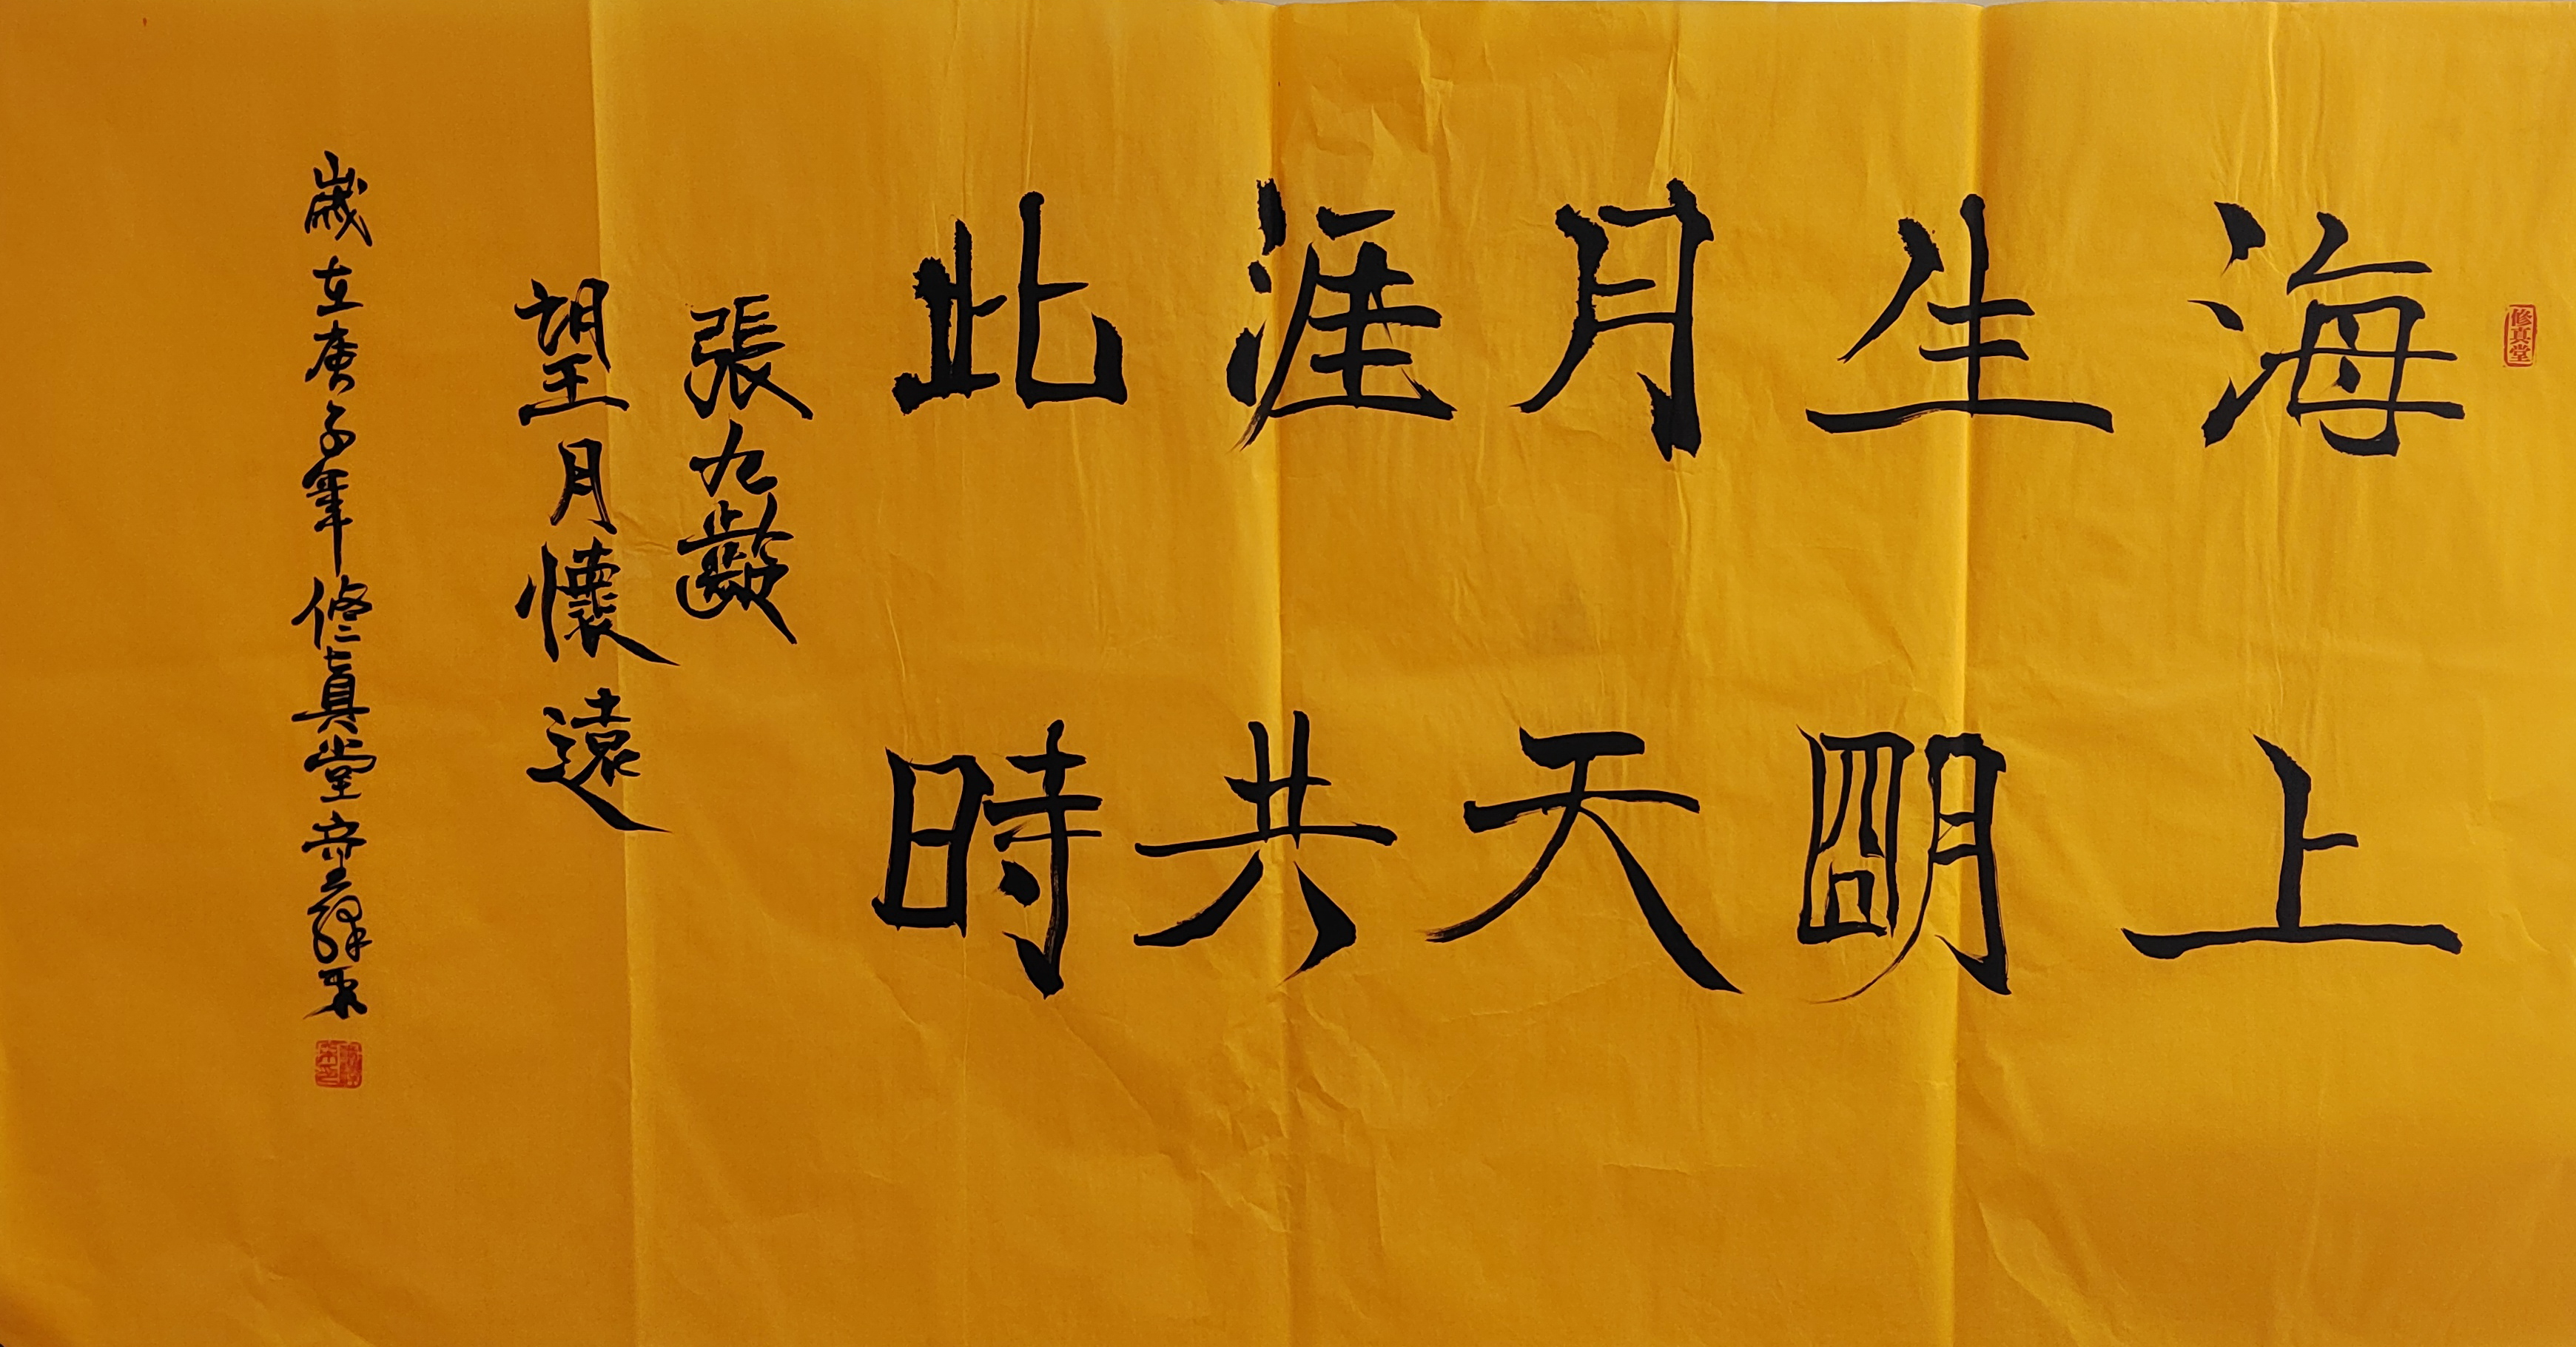 修真堂
海上
生朙
月天
涯共
此時
張九齡
望月懷遠
歲在庚子年修真堂